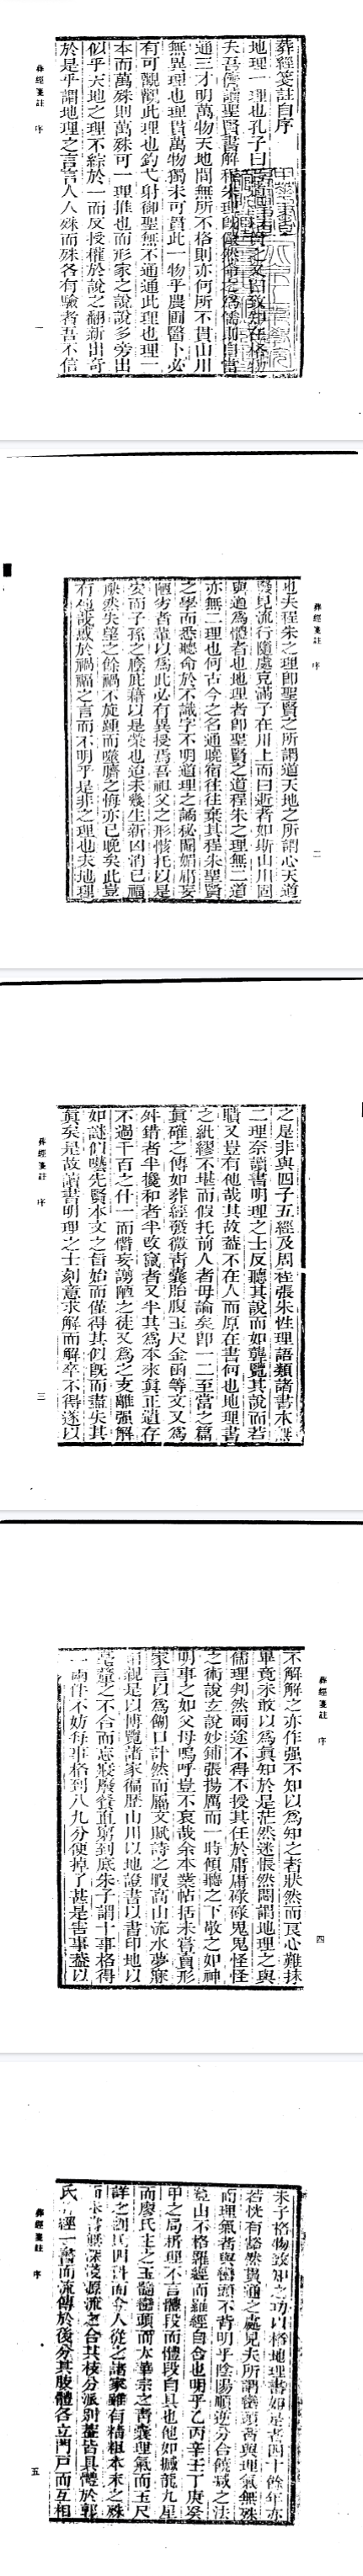 葬經箋註自序
地理一理也孔子曰吾道一以貫之又曰致知在格物
夫吾儒讀聖賢書解程朱理既儼然命之爲儒則自當
通三才明萬物天地間無所不格則亦何所不貫山川
無異理也理貫萬物獨未可貫此一物乎農圃醫卜必
有可觀觀此理也釣弋射御聖無不通通此理也理一
本而萬殊則萬殊可一理推也而形家之說說多旁出
似乎天地之理不綜於一而反授權於說之翻新出奇
於是乎謂地理之言言人人殊而殊各有驗者吾不信
葬經箋註 序 一
葬經箋註 序 二
也夫程朱之理卽聖賢之所謂道天地之所謂心天道
發見流行隨處充滿子在川上而曰逝者如斯山川固
與道爲體者也地理者卽聖賢之道程朱之理無二道
亦無二理也何古今之名通曉宿往往棄其程朱聖賢
之學而悉聽命於不識字不明道理之譎秘圖媚庸妄
陋劣者輩以爲此必有異授焉吾祖父之形骸托以是
安而子孫之廕庇藉以是榮也迨未幾生新凶消已福
茫然失望之餘禍不旋踵而噬臍之悔亦已晚矣此豈
有他哉惑於禍福之言而不明乎是非之理也夫地理
之是非與四子五經及周程張朱性理語類諸書本無
二理奈讀書明理之士反聽其說而如聾覽其說而若
瞶又豈有他哉其故蓋不在人而原在書何也地理書
之紕繆不堪而假托前人者毋論矣卽一二至當之篇
眞確之傳如葬經發微靑囊胎腹玉尺金函等文又爲
舛錯者半攙和者半改竄者又半其爲本來眞正遺存
不過千百之什一而僭妄謭陋之徒又爲之支離强解
如謎似囈先賢本文之旨始而僅得其似旣而盡失其
眞矣是故讀書明理之士刻意求解而解卒不得遂以
葬經箋註 序 三
葬經箋註 序 四
不解解之亦作强不知以爲知之者狀然而良心難抹
畢竟未敢以爲眞知於是茫然迷悵然悶謂地理之與
儒理判然兩途不得不授其任於庸庸碌碌鬼鬼怪怪
之術說玄說妙鋪張揚厲而一時傾聽之下敬之如神
明事之如父母嗚呼豈不哀哉余本業帖括未嘗賣形
家言以爲餬口計然而屬文賦詩之暇高山流水夢寐
相親是以博覽諸家徧歷山川以地證書以書印地以
毫釐之不合而忘寢廢餐直窮到底朱子謂十事格得
一兩件不妨每事格到八九分便掉了甚是害事蓋以
朱子格物致知之功以格地理書如是者四十餘年亦
若恍有豁然貫通之處見夫所謂巒頭者與理氣無殊
而理氣者與巒頭不背明乎陰陽順逆分合饒減之法
覓山不格羅經而羅經自合也明乎乙丙辛壬丁庚癸
甲之局析理不言體段而體段自具也他如撼龍九星
而廖氏主之玉髓巒頭而本華宗之靑囊理氣而玉尺
詳之劉氏四計而今人從之諸家雖有精粗本末之殊
而其書無深淺源流之合其枝分派別蓋皆具體於郭
氏 經一書而流傳於後分其肢體各立門戶而互相
葬經箋註 序 五